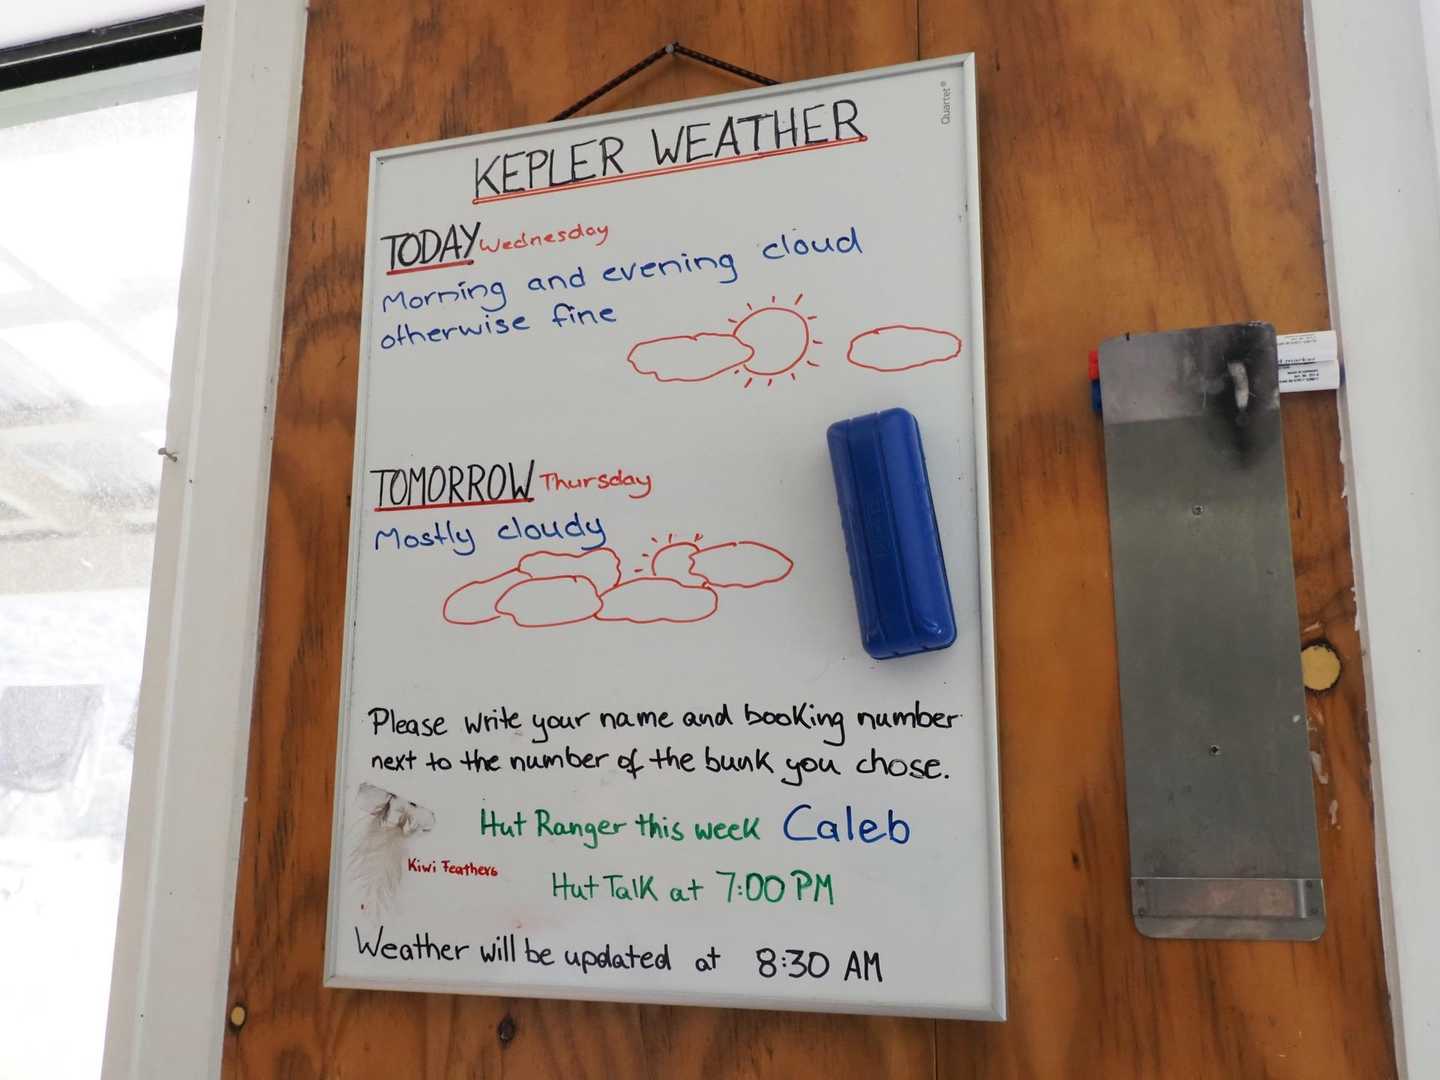 Quartet®
KEPLER WEATHER
TODAY Wednesday
Morning and evening cloud
otherwise fine
TOMORROW Thursday
Mostly cloudy
Please write your name and booking number
next to the number of the bunk you chose.
Hut Ranger this week Caleb
Kiwi Feathers
Hut Talk at 7:00 PM
Weather will be updated at 8:30 AM